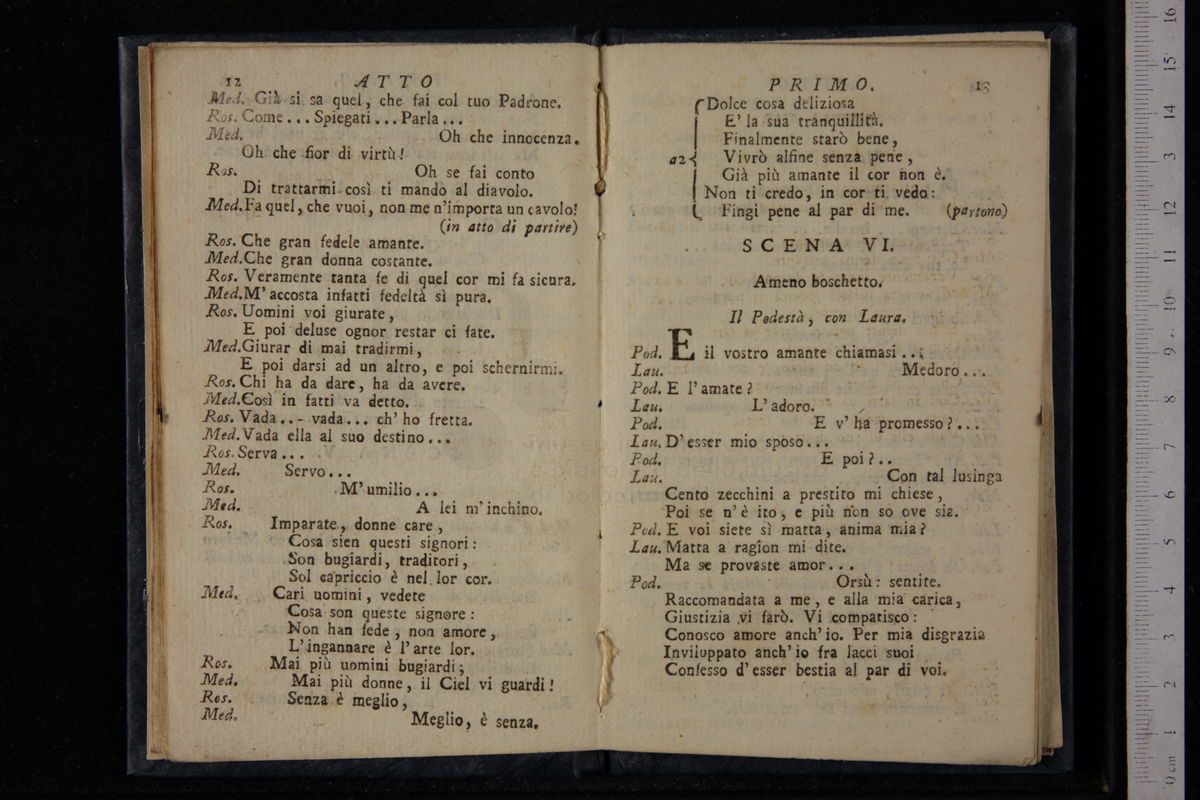 12 ATTO
Med. Già si sa quel, che fai col tuo Padrone.
Ros. Come... Spiegati... Parla...
Med. Oh che innocenza.
Oh che fior di virtù!
Ros. Oh se fai conto
Di trattarmi così ti mando al diavolo.
Med. Fa quel, che vuoi, non me n'importa un cavolo!
(in atto di partire)
Ros. Che gran fedele amante.
Med. Che gran donna costante.
Ros. Veramente tanta fe di quel cor mi fa sicura.
Med. M'accosta infatti fedeltà sì pura.
Ros. Uomini voi giurate,
E poi deluse ognor restar ci fate.
Med. Giurar di mai tradirmi,
E poi darsi ad un altro, e poi schernirmi.
Ros. Chi ha da dare, ha da avere.
Med. Così in fatti va detto.
Ros. Vada..- vada... ch'ho fretta.
Med. Vada ella al suo destino...
Ros. Serva...
Med. Servo...
Ros. M'umilio...
Med. A lei m'inchino.
Ros. Imparate, donne care,
Cosa sien questi signori:
Son bugiardi, traditori,
Sol capriccio è nel lor cor.
Med. Cari uomini, vedete
Cosa son queste signore:
Non han fede, non amore,
L'ingannare è l'arte lor.
Ros. Mai più uomini bugiardi;
Med. Mai più donne, il Ciel vi guardi!
Ros. Senza è meglio,
Med. Meglio, è senza.
PRIMO. 13
Dolce cosa deliziosa
E' la sua tranquillità.
Finalmente starò bene,
a2 Vivrò alfine senza pene,
Già più amante il cor non è.
Non ti credo, in cor ti vedo:
Fingi pene al par di me. (partono)
SCENA VI.
Ameno boschetto.
Il Podestà, con Laura.
Pod. E il vostro amante chiamasi...
Lau. Medoro...
Pod. E l'amate?
Lau. L'adoro.
Pod. E v'ha promesso?...
Lau. D'esser mio sposo...
Pod. E poi?..
Lau. Con tal lusinga
Cento zecchini a prestito mi chiese,
Poi se n'è ito, e più non so ove sia.
Pod. E voi siete sì matta, anima mia?
Lau. Matta a ragion mi dite.
Ma se provaste amor...
Pod. Orsù: sentite.
Raccomandata a me, e alla mia carica,
Giustizia vi farò. Vi compatisco:
Conosco amore anch'io. Per mia disgrazia
Inviluppato anch'io fra lacci suoi
Confesso d'esser bestia al par di voi.
0 cm 1 2 3 4 5 6 7 8 9 10 11 12 13 14 15 16